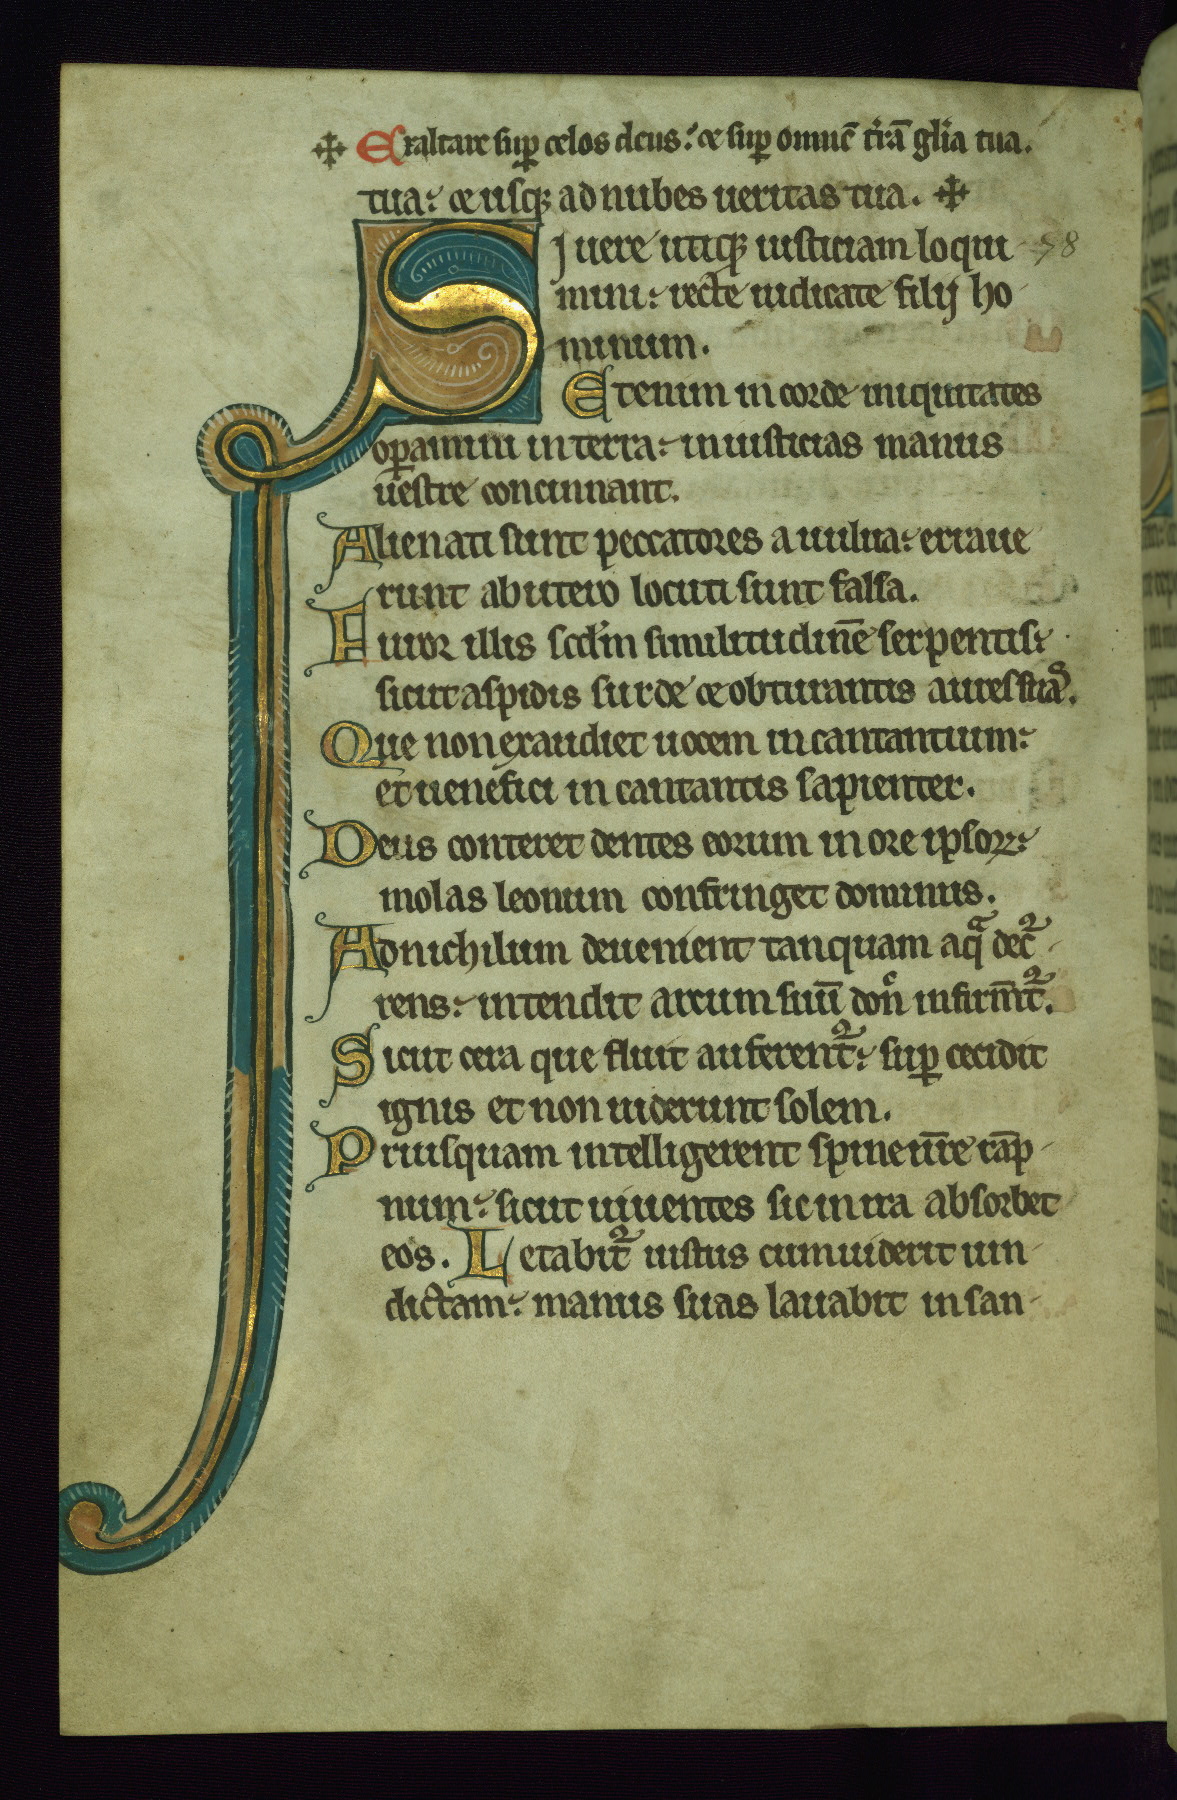 ✣ Exaltare sup̲ celos deus: ⁊ sup̲ omnē t̄rā gl̄ia tua.
tua: et usq; ad nubes ueritas tua. ✣
Si uere utiq; iusticiam loqui 58
mini: recte iudicate filij ho
minum.
Etenim in corde iniquitates
op̲amini in terra: iniusticias manus
uestre concinnant.
Alienati sunt peccatores a uulua: erraue
runt ab utero locuti sunt falsa.
Furor illis scd̄m similitudinē serpentis:
sicut aspidis surde et obturantis aures suas.
Que non exaudiet uocem in cantantium:
et uenefici in cantantis sapienter.
Deus conteret dentes eorum in ore ipsoꝝ:
molas leonum confringet dominus.
Ad nichilum deuenient tanquam aqᵃ decᷣ
rens: intendit arcum suū don̄ infirmt̄ᷣ.
Sicut cera que fluit auferentᷣ: sup̲ cecidit
ignis et non uiderunt solem.
Priusquam intelligerent spine ur̄e rāp
num: sicut uiuentes sic in ira absorbet
eos. Letabitᷣ iustus cum uiderit uin
dictam: manus suas lauabit in san